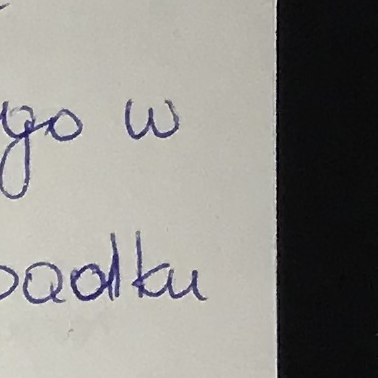 go w
padku